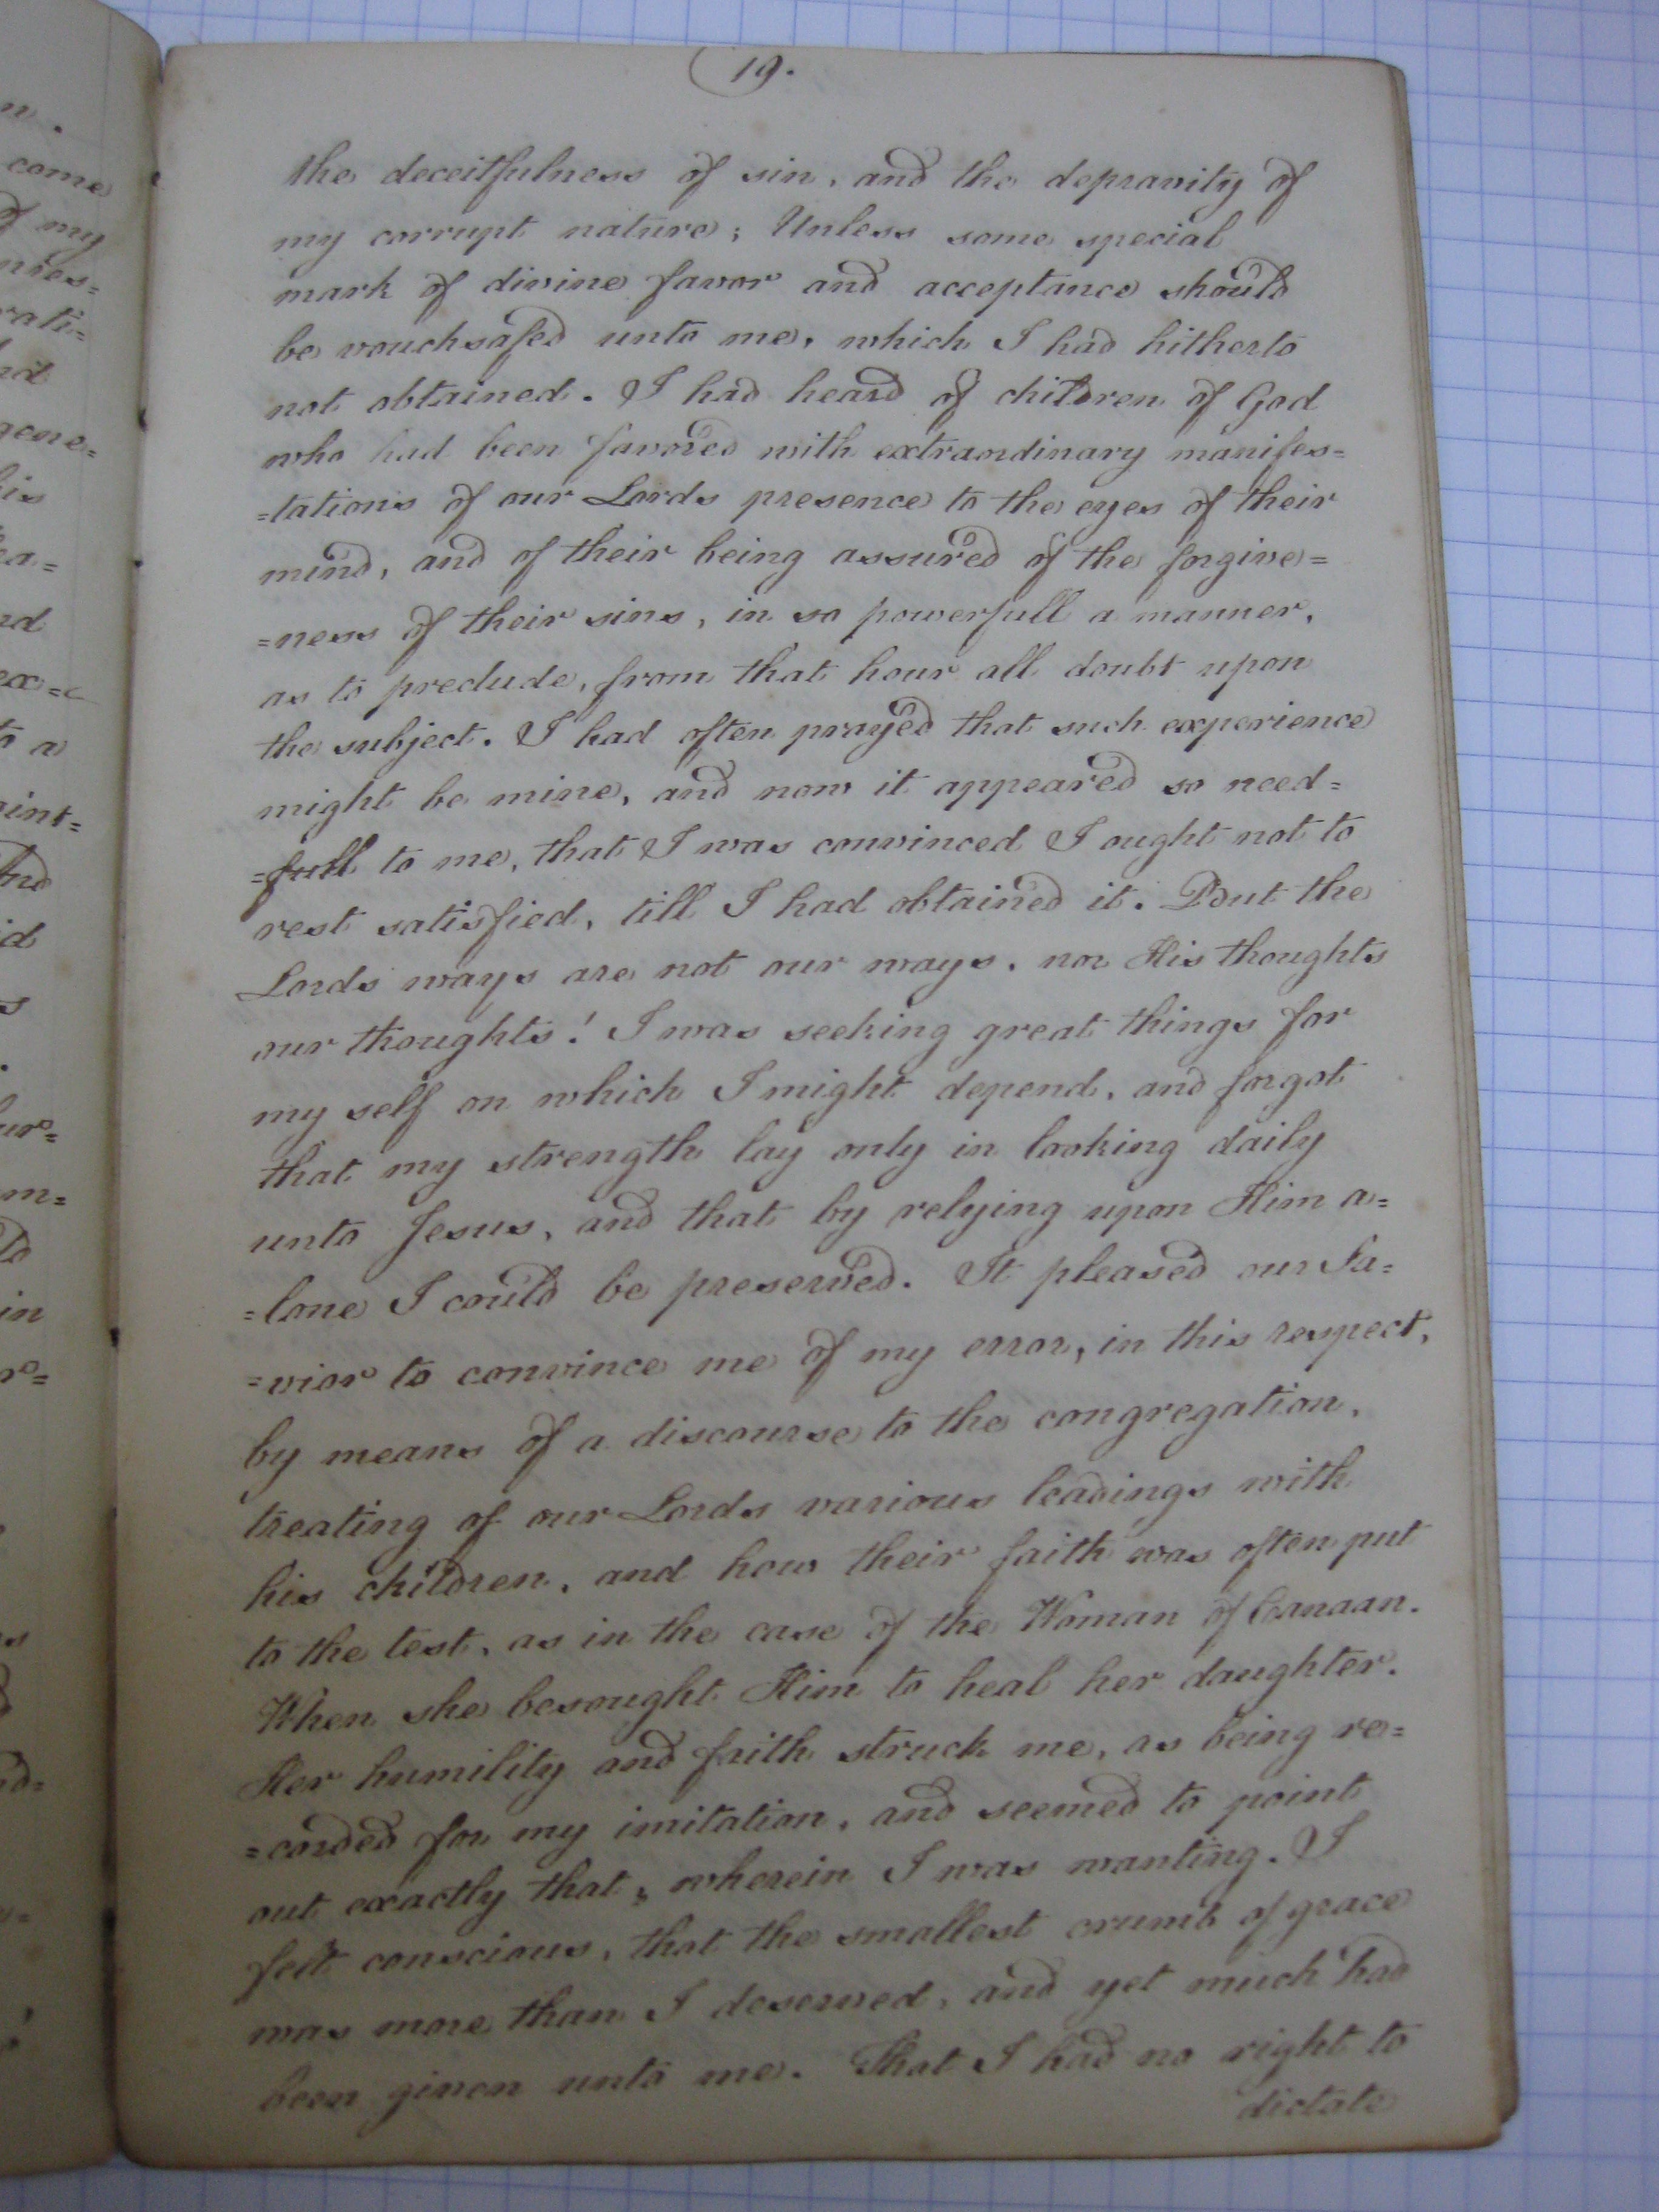 19.
the deceitfulness of sin, and the depravity of
my corrupt nature; Unless some special
mark of divine favor and acceptance should
be vouchsafed unto me, which I had hitherto
not obtained. I had heard of children of God
who had been favored with extraordinary manifes=
=tations of our Lords presence to the eyes of their
mind, and of their being assured of the forgive=
=ness of their sins, in so powerfull a manner,
as to preclude, from that hour all doubt upon
the subject. I had often prayed that such experience
might be mine, and now it appeared so need=
=full to me, that I was convinced I ought not to
rest satisfied, till I had obtained it. But the
Lords ways are not our ways, nor His thoughts
our thoughts! I was seeking great things for
my self on which I might depend, and forgot
that my strength lay only in looking daily
unto Jesus, and that by relying upon Him a=
=lone I could be preserved. It pleased our Sa=
=vior to convince me of my error, in this respect,
by means of a discourse to the congregation,
treating of our Lords various leadings with
his children, and how their faith was often put
to the test, as in the case of the Woman of Canaan.
When she besought Him to heal her daughter.
Her humility and faith struck me, as being re=
=corded for my imitation, and seemed to point
out exactly that, wherein I was wanting. I
felt conscious, that the smallest crumb of grace
was more than I deserved, and yet much had
been given unto me. That I had no right to
dictate
n.
come
of my
nres=
rati=
nd
gene=
his
ea=
nd
ex=
to a
int=
and
id
s
ur=
m=
to
in
r=